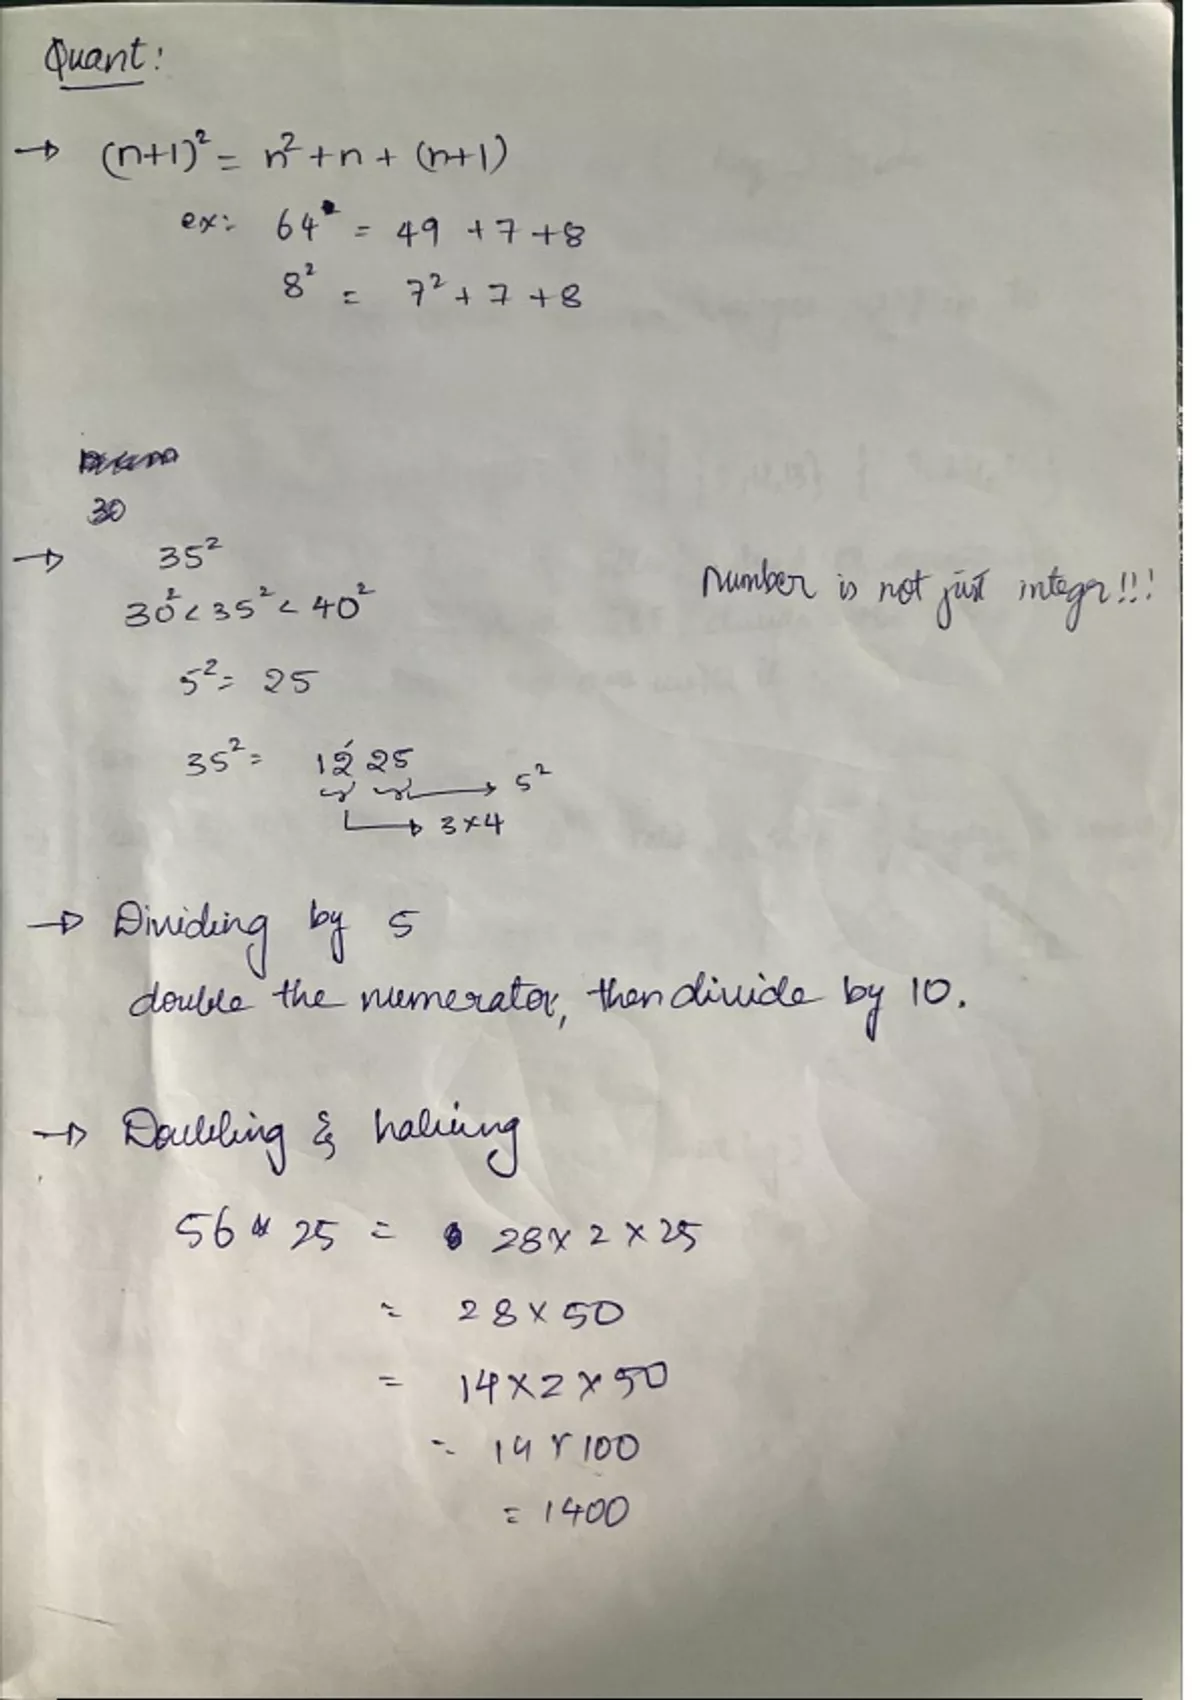 Quant:
→ (n+1)² = n² + n + (n+1)
ex: 64 = 49 + 7 + 8
8² = 7² + 7 + 8
30
→ 35²
30² < 35² < 40²
5² = 25
Number is not just integer!!!
35² = 1225
→ 5²
→ 3×4
→ Dividing by 5
double the numerator, then divide by 10.
→ Doubling & halving
56 × 25 = 28 × 2 × 25
= 28 × 50
= 14 × 2 × 50
= 14 × 100
= 1400